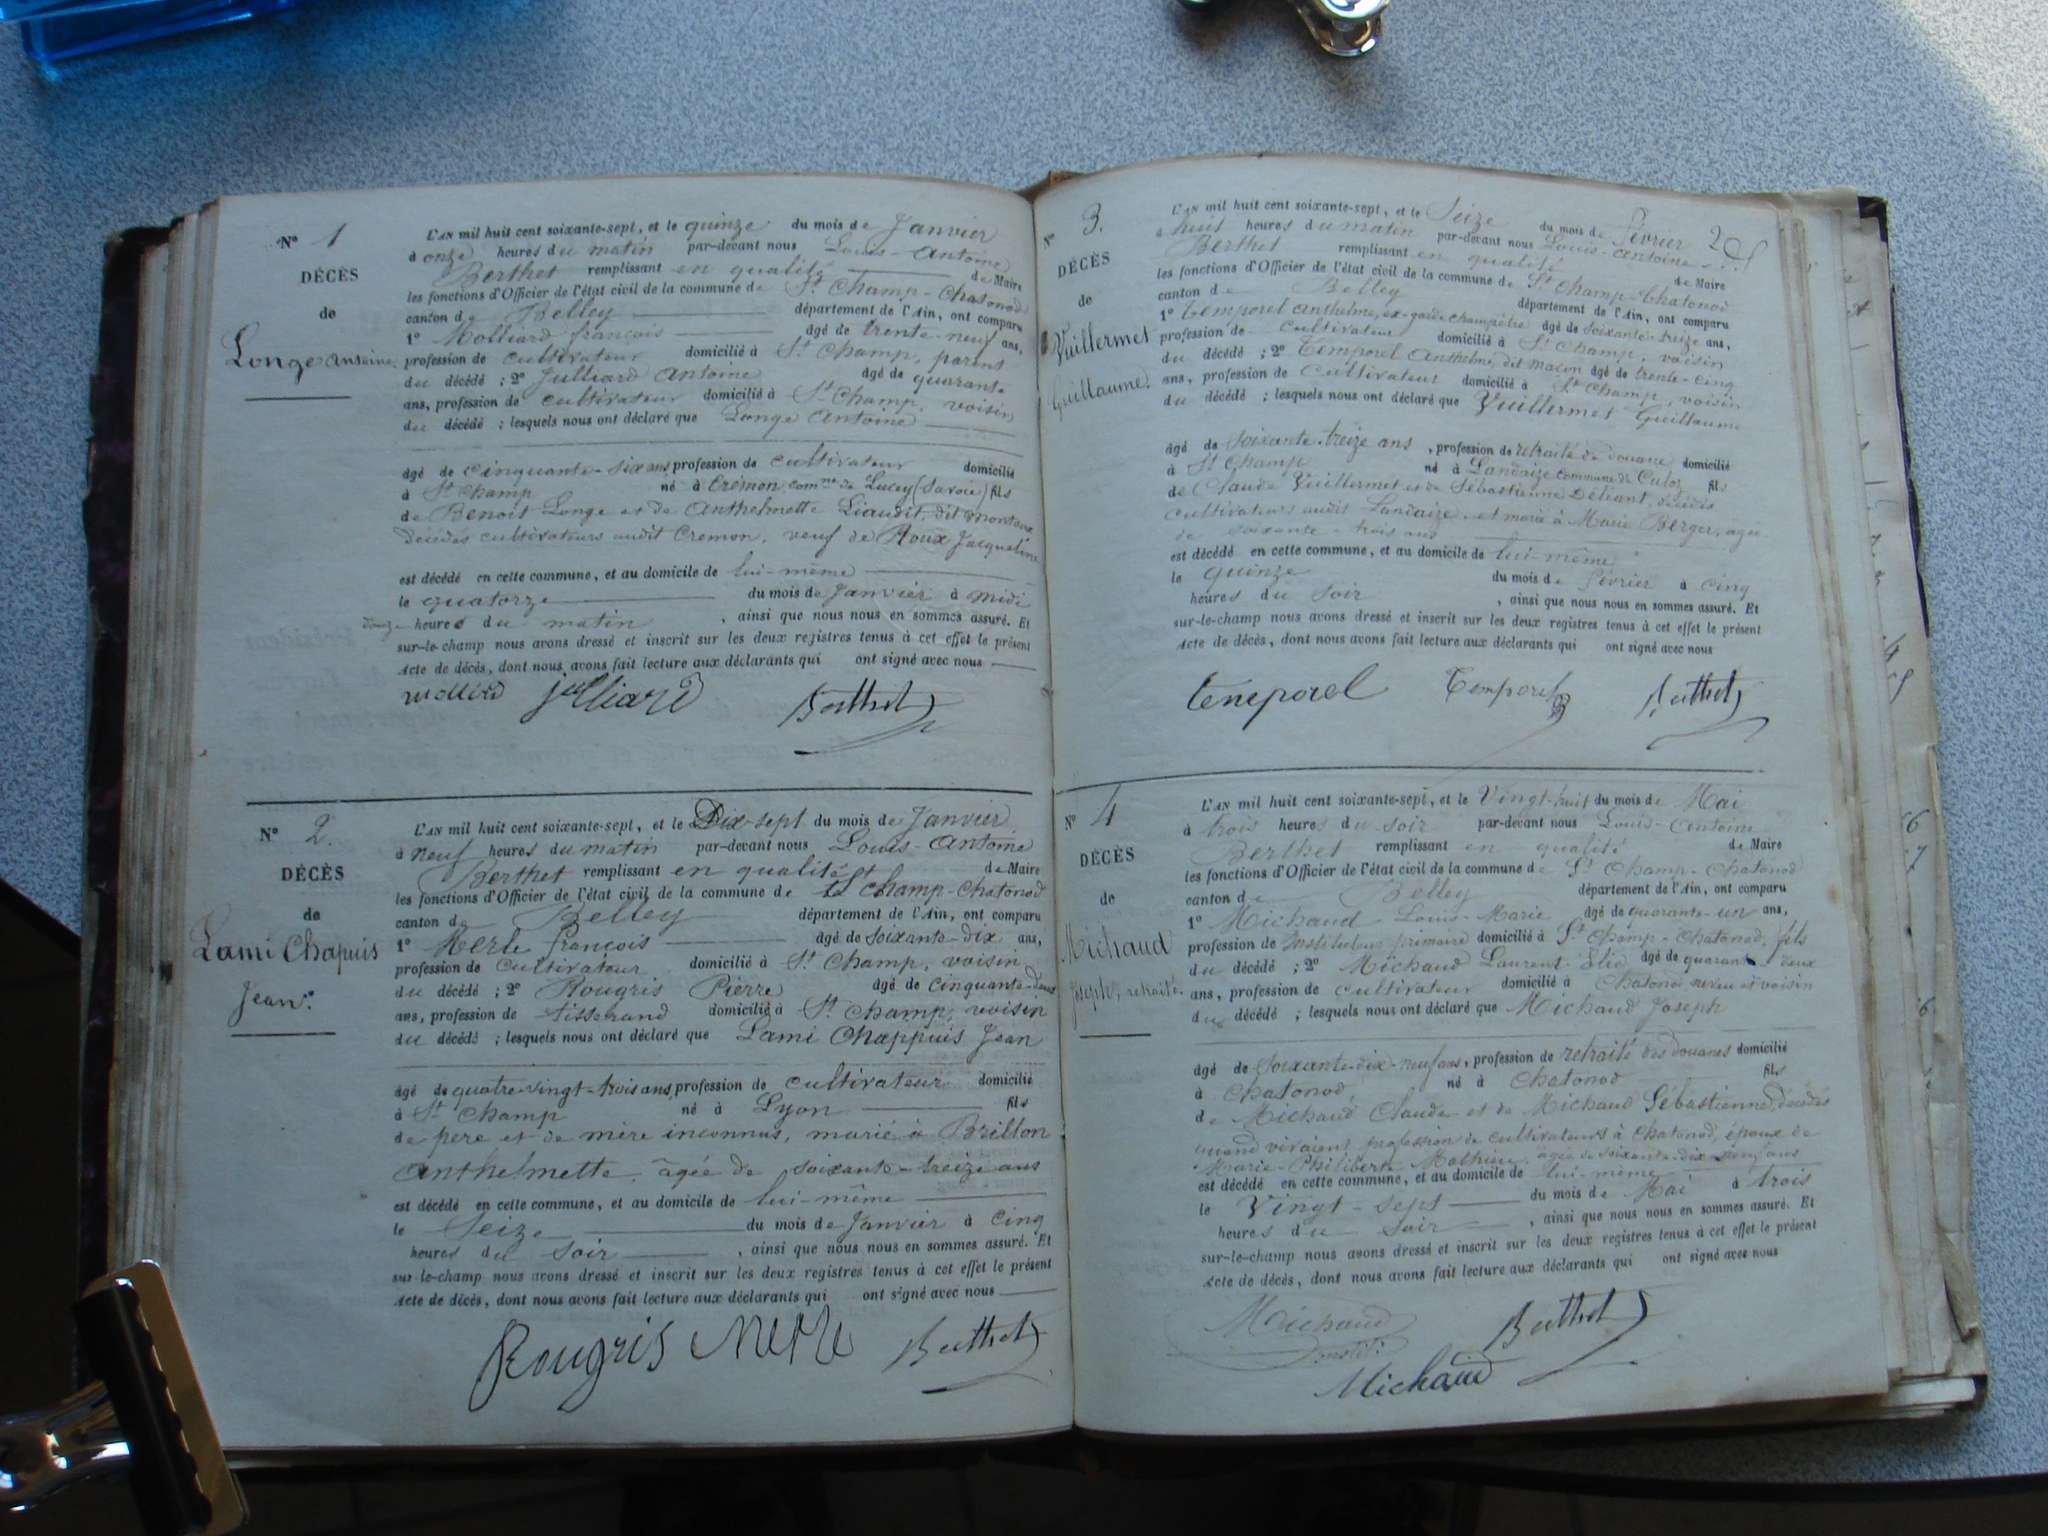 N° 1
DÉCÈS
de
Longe Antoine
L'AN mil huit cent soixante-sept, et le quinze du mois de Janvier
à onze heures du matin par-devant nous Louis-Antoine
Berthet remplissant en qualité de Maire
les fonctions d'Officier de l'état civil de la commune de St Champ-Chatonod
canton de Belley département de l'Ain, ont comparu
1° Molliard françois âgé de trente-neuf ans,
profession de cultivateur domicilié à St Champ, parent
du décédé ; 2° Julliard Antoine âgé de quarante
ans, profession de cultivateur domicilié à St Champ, voisin
du décédé ; lesquels nous ont déclaré que Longe Antoine
âgé de cinquante-six ans profession de cultivateur domicilié
à St Champ né à Crémon, comne de Lucey (Savoie) fils
de Benoit Longe et de Anthelmette Liaudit, dit
décédés cultivateurs audit Cremon, veuf de Roux Jacqueline
est décédé en cette commune, et au domicile de lui-même
le quatorze du mois de Janvier à midi
douze heures du matin, ainsi que nous nous en sommes assuré. Et
sur-le-champ nous avons dressé et inscrit sur les deux registres tenus à cet effet le présent
Acte de décès, dont nous avons fait lecture aux déclarants qui ont signé avec nous
julliard Berthet
N° 2.
DÉCÈS
de
Lami Chapuis
Jean.
L'AN mil huit cent soixante-sept, et le Dix-sept du mois de Janvier
à neuf heures du matin par-devant nous Louis-Antoine
Berthet remplissant en qualité de Maire
les fonctions d'Officier de l'état civil de la commune de St Champ-Chatonod
canton de Belley département de l'Ain, ont comparu
1° Merle françois âgé de soixante-dix ans,
profession de cultivateur domicilié à St Champ, voisin
du décédé ; 2° Rougris Pierre âgé de cinquante-deux
ans, profession de tisserand domicilié à St Champ, voisin
du décédé ; lesquels nous ont déclaré que Lami Chappuis Jean
âgé de quatre-vingt-trois ans profession de cultivateur domicilié
à St Champ né à Lyon fils
de père et de mère inconnus, marié à Brillon
Anthelmette, âgée de soixante-treize ans
est décédé en cette commune, et au domicile de lui-même
le Seize du mois de Janvier à cinq
heures du soir, ainsi que nous nous en sommes assuré. Et
sur-le-champ nous avons dressé et inscrit sur les deux registres tenus à cet effet le présent
Acte de décès, dont nous avons fait lecture aux déclarants qui ont signé avec nous
Rougris Merle Berthet
N° 3.
DÉCÈS
de
Vuillermet
Guillaume.
L'AN mil huit cent soixante-sept, et le Seize du mois de Février 2
à huit heures du matin par-devant nous Louis-Antoine
Berthet remplissant en qualité de Maire
les fonctions d'Officier de l'état civil de la commune de St Champ-Chatonod
canton de Belley département de l'Ain, ont comparu
1° Temporel Anthelme, ex-garde champêtre âgé de soixante-treize ans,
profession de cultivateur domicilié à St Champ, voisin
du décédé ; 2° Temporel Anthelme, dit maçon âgé de trente-cinq
ans, profession de Cultivateur domicilié à St Champ, voisin
du décédé ; lesquels nous ont déclaré que Vuillermet Guillaume
âgé de soixante-treize ans, profession de retraité de douane domicilié
à St Champ né à Landaize commune de Culoz fils
de Claude Vuillermet et de Sébastienne Déliant, décédés
cultivateurs audit Landaize, et marié à Marie Berger, agée
de soixante-trois ans
est décédé en cette commune, et au domicile de lui-même
le quinze du mois de février à cinq
heures du soir, ainsi que nous nous en sommes assuré. Et
sur-le-champ nous avons dressé et inscrit sur les deux registres tenus à cet effet le présent
Acte de décès, dont nous avons fait lecture aux déclarants qui ont signé avec nous
temporel Temporel Berthet
N° 4
DÉCÈS
de
Michaud
Joseph, retraité
L'AN mil huit cent soixante-sept, et le Vingt-huit du mois de Mai
à trois heures du soir par-devant nous Louis-Antoine
Berthet remplissant en qualité de Maire
les fonctions d'Officier de l'état civil de la commune de St Champ-Chatonod
canton de Belley département de l'Ain, ont comparu
1° Michaud Louis-Marie âgé de quarante-un ans,
profession de Instituteur primaire domicilié à St Champ-Chatonod, fils
du décédé ; 2° Michaud Laurent Elie âgé de quarante-deux
ans, profession de cultivateur domicilié à Chatonod neveu et voisin
du décédé ; lesquels nous ont déclaré que Michaud Joseph
âgé de Soixante-dix-neuf ans, profession de retraité des douanes domicilié
à Chatonod, né à Chatonod fils
de Michaud Claude et de Michaud Sébastienne, décédés
quand vivaient profession de cultivateurs à Chatonod, époux de
Marie-Philiberte Mathieu, agée de soixante-dix ans
est décédé en cette commune, et au domicile de lui-même
le Vingt-sept du mois de Mai à trois
heures du soir, ainsi que nous nous en sommes assuré. Et
sur-le-champ nous avons dressé et inscrit sur les deux registres tenus à cet effet le présent
Acte de décès, dont nous avons fait lecture aux déclarants qui ont signé avec nous
Michaud Berthet
Michaud